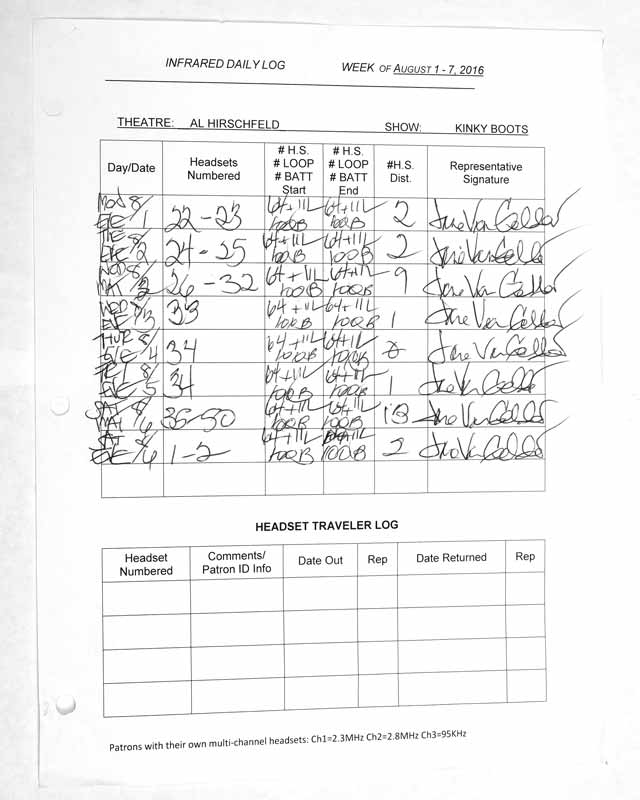 INFRARED DAILY LOG WEEK OF AUGUST 1 - 7, 2016
THEATRE: AL HIRSCHFELD SHOW: KINKY BOOTS
Day/Date Headsets Numbered # H.S. # LOOP # BATT Start # H.S. # LOOP # BATT End #H.S. Dist. Representative Signature
MON 8/1 EVE 22-23 64+11L 100B 64+11L 100B 2
TUE 8/2 EVE 24-25 64+11L 100B 64+11L 100B 2
WED 8/3 MAT 26-32 64+11L 100B 64+11L 100B 9
WED 8/3 EVE 33 64+11L 100B 64+11L 100B 1
THUR 8/4 EVE 34 64+11L 100B 64+11L 100B
FRI 8/5 EVE 34 64+11L 100B 64+11L 100B 1
SAT 8/6 MAT 64+11L 100B 64+11L 100B 13
SAT 8/6 EVE 1-2 64+11L 100B 64+11L 100B 2
HEADSET TRAVELER LOG
Headset Numbered Comments/ Patron ID Info Date Out Rep Date Returned Rep
Patrons with their own multi-channel headsets: Ch1=2.3MHz Ch2=2.8MHz Ch3=95KHz